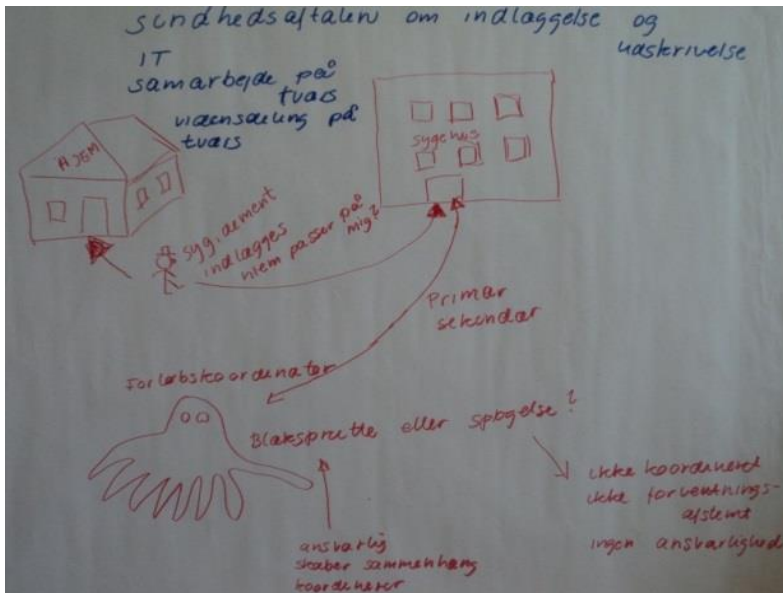 sundhedsaftalen om indlæggelse og
udskrivelse
IT
samarbejde på
tværs
vidensdeling på
tværs
HJEM
sygehus
syg, dement
indlægges
hvem passer på
mig?
Primær
sekundær
Forløbskoordinator
Blæksprutte eller spøgelse?
ikke koordineret
ikke forventnings-
afstemt
ingen ansvarlighed
ansvarlig
skaber sammenhæng
koordinerer